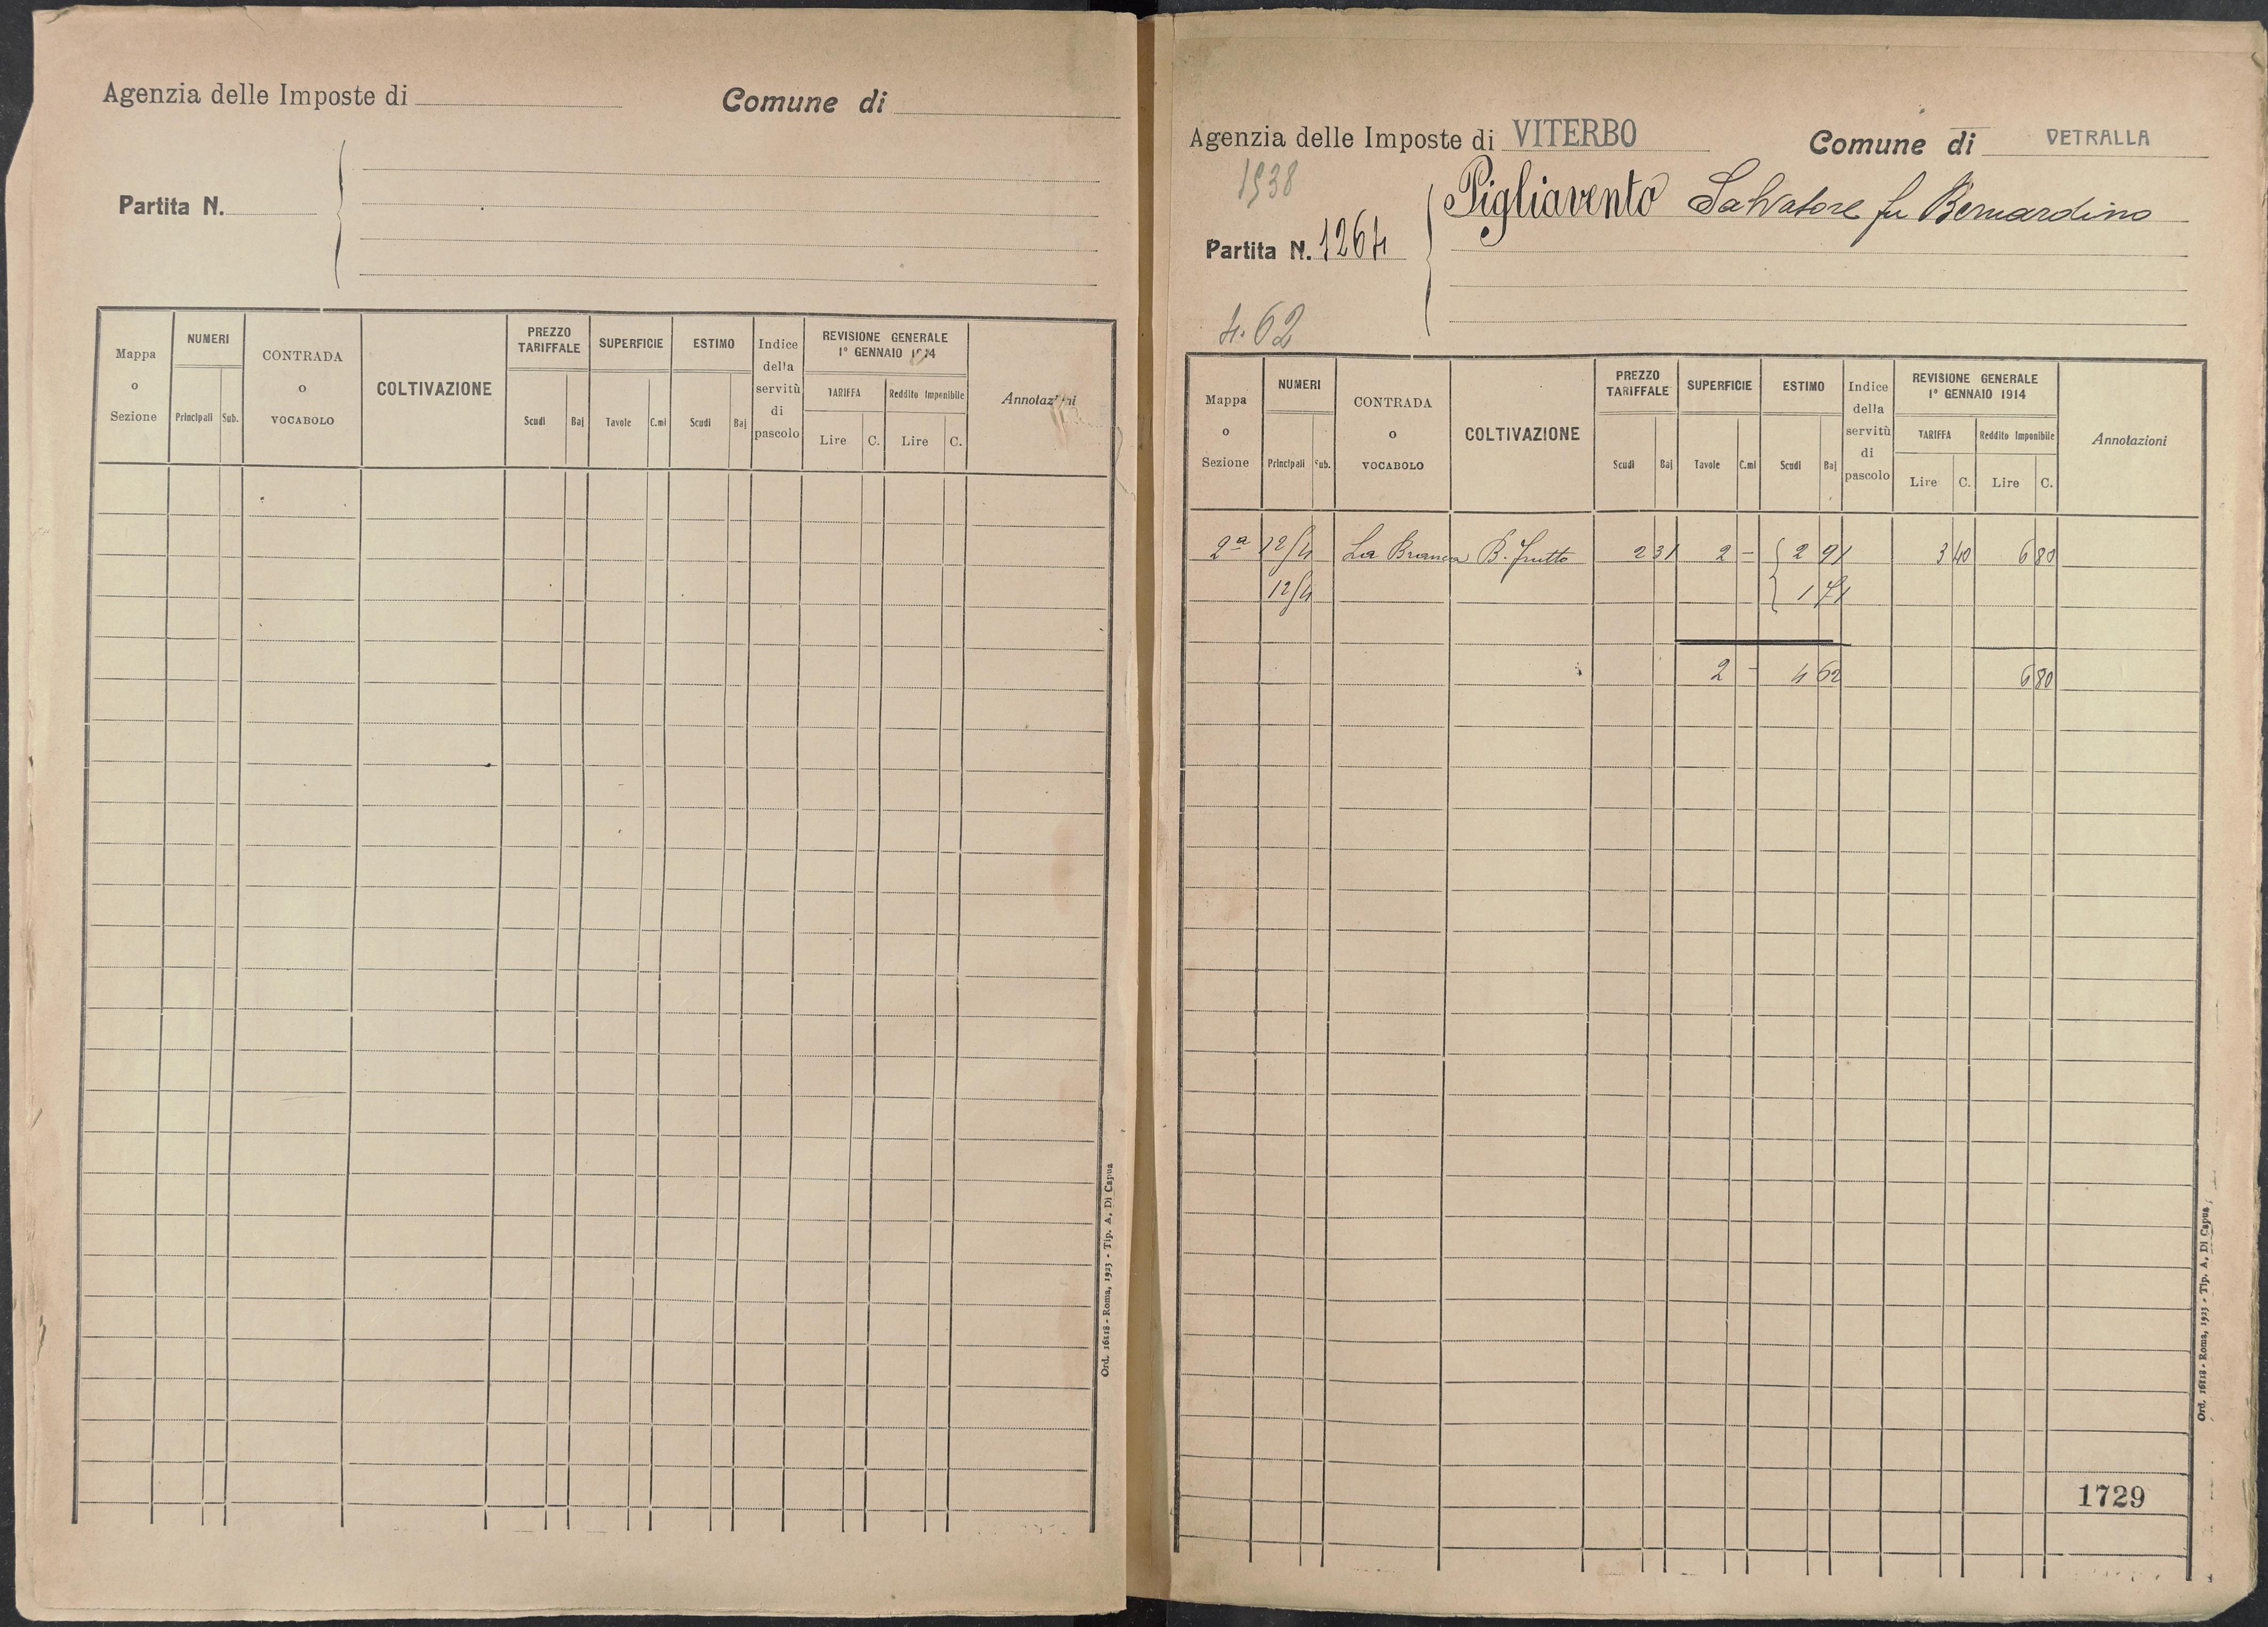 Agenzia delle Imposte di
Comune di
Partita N.
Mappa o Sezione
NUMERI
Principali
Sub.
CONTRADA o VOCABOLO
COLTIVAZIONE
PREZZO TARIFFALE
Scudi
Baj
SUPERFICIE
Tavole
C.mi
ESTIMO
Scudi
Baj
Indice della servitù di pascolo
REVISIONE GENERALE
1° GENNAIO 1914
TARIFFA
Reddito Imponibile
Lire
C.
Lire
C.
Annotazioni
Ord. 16118 - Roma, 1923 - Tip. A. Di Capua
Agenzia delle Imposte di VITERBO
Comune di VETRALLA
1938
Pigliavento Salvatore fu Bernardino
Partita N. 1264
4.62
Mappa o Sezione
NUMERI
Principali
Sub.
CONTRADA o VOCABOLO
COLTIVAZIONE
PREZZO TARIFFALE
Scudi
Baj
SUPERFICIE
Tavole
C.mi
ESTIMO
Scudi
Baj
Indice della servitù di pascolo
REVISIONE GENERALE
1° GENNAIO 1914
TARIFFA
Reddito Imponibile
Lire
C.
Lire
C.
Annotazioni
2ª 12/4 La Branca B. frutto 2 31 2 - 2 91 3 40 6 80
12/4 1 71
2 - 4 62 6 80
1729
Ord. 16118 - Roma, 1923 - Tip. A. Di Capua